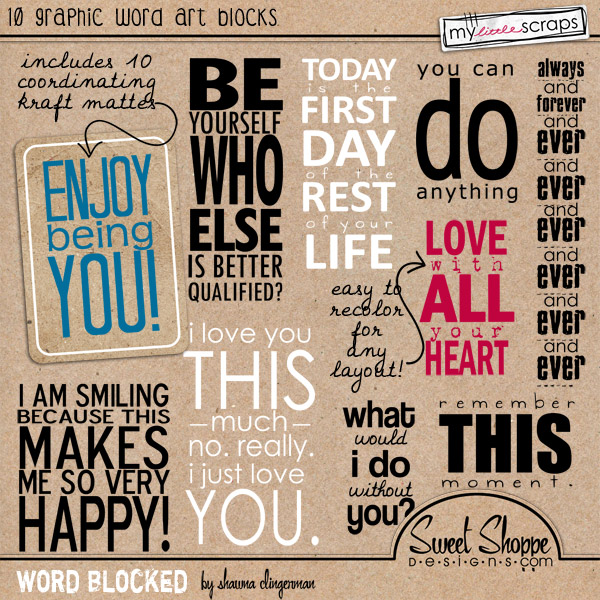 10 graphic word art blocks
my little scraps
includes 10
coordinating
kraft mattes
ENJOY
being
YOU!
BE
YOURSELF
WHO
ELSE
IS BETTER
QUALIFIED?
TODAY
is the
FIRST
DAY
of the
REST
of your
LIFE
you can
do
anything
always
and
forever
and
ever
and
ever
and
ever
and
ever
and
ever
and
ever
LOVE
with
ALL
your
HEART
easy to
recolor
for
any
layout!
I AM SMILING
BECAUSE THIS
MAKES
ME SO VERY
HAPPY!
i love you
THIS
—much—
no. really.
i just love
YOU.
what
would
i do
without
you?
remember
THIS
moment.
Sweet Shoppe
DESIGNS.com
WORD BLOCKED by shawna clingerman